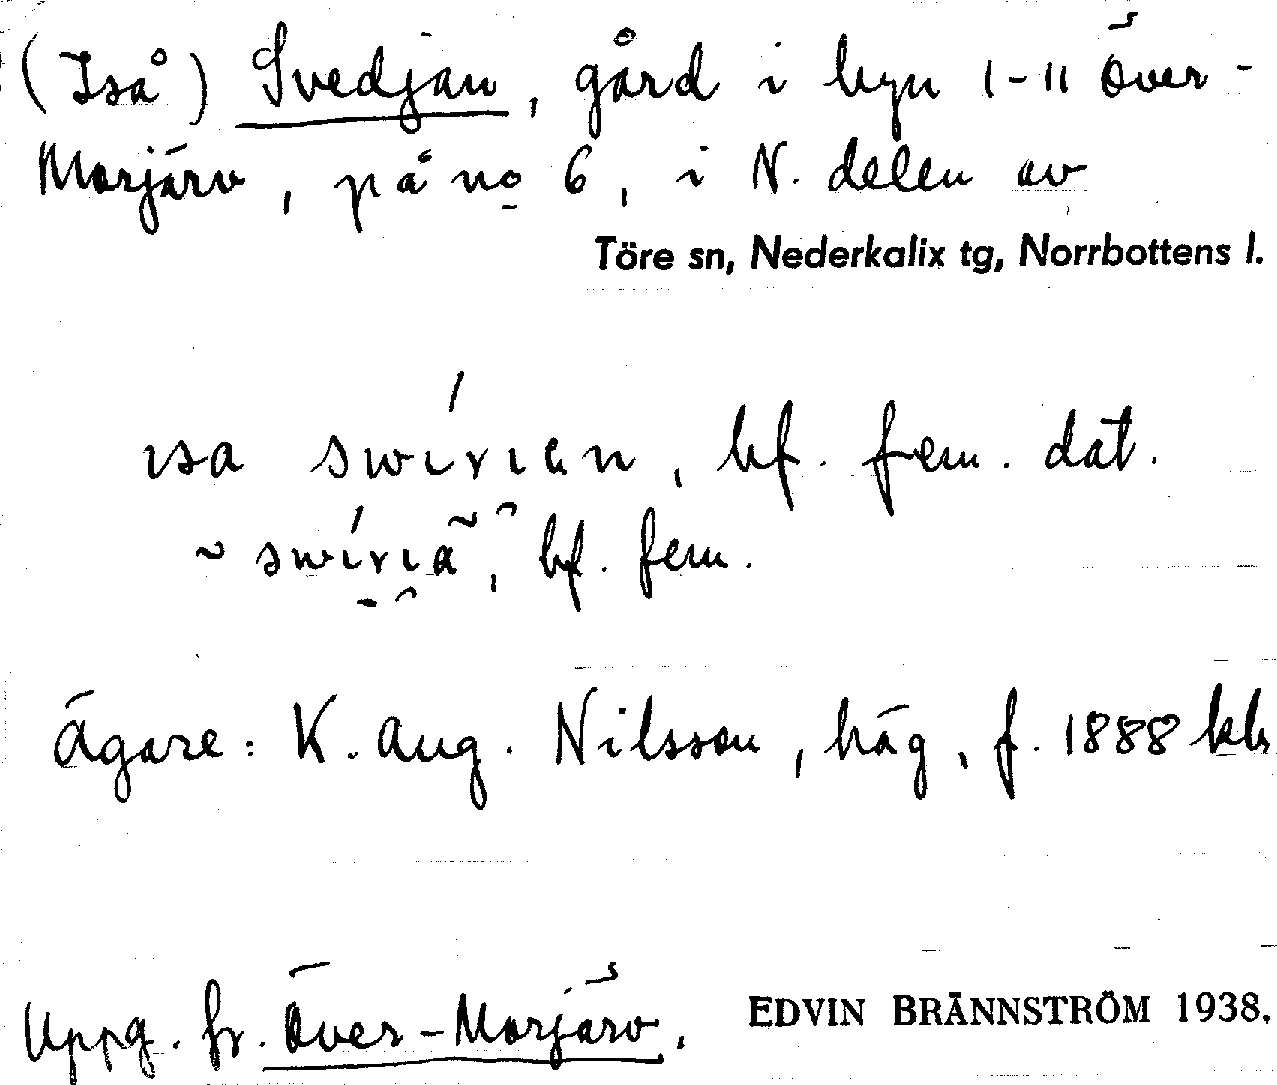 (Iså) Svedjan, gård i byn 1-11 Över-
Morjärv, på no 6, i N. delen av
Töre sn, Nederkalix tg, Norrbottens l.
ɩsa swívɩan, bf. fem. dat.
~ swívɩã, bf. fem.
Ägare: K. Aug. Nilsson, häg, f. 1888 kh
Uppg. fr. Över-Morjärv. EDVIN BRÄNNSTRÖM 1938.